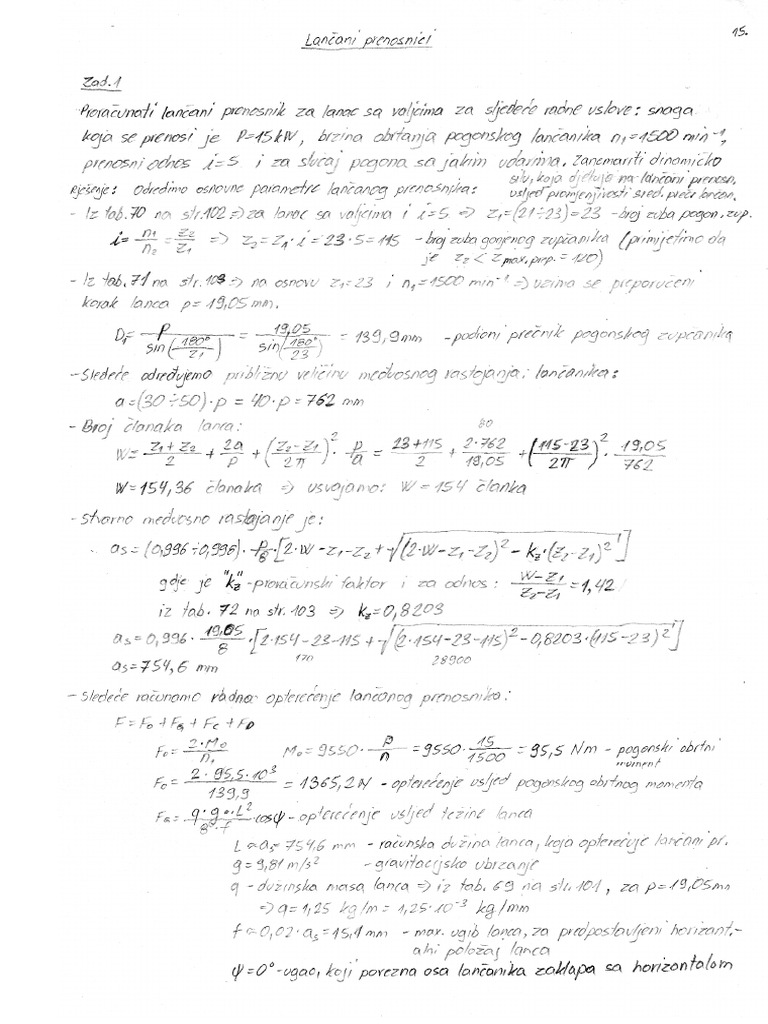 Lančani prenosnici
15.
Zad.1
Proračunati lančani prenosnik za lanac sa valjcima za sljedeće radne uslove: snaga
koja se prenosi je P=15kW, brzina obrtanja pogonskog lančanika n₁=1500 min⁻¹,
prenosni odnos i=5 i za slučaj pogona sa jakim udarima. Zanemariti dinamičko
silu, koja djeluje na lančani prenosn.
Rješenje: Odredimo osnovne parametre lančanog prenosnika: usljed promjenjivosti sred. preč. lančan.
- Iz tab.70 na str.102 => za lanac sa valjcima i i=5 => z₁=(21÷23)=23 - broj zuba pogon. zup.
i = n₁/n₂ = z₂/z₁ => z₂=z₁·i=23·5=115 - broj zuba gonjenog zupčanika (primijetimo da
je z₂ < z max.prep. = 120)
- Iz tab.71 na str.103 => na osnovu z₁=23 i n₁=1500 min⁻¹ => uzima se preporučeni
korak lanca p=19,05 mm.
D₁ = p/sin(180°/z₁) = 19,05/sin(180°/23) = 139,9mm - podioni prečnik pogonskog zupčanika
- Sledeće određujemo približnu veličinu međuosnog rastojanja lančanika:
a=(30÷50)·p = 40·p = 762 mm
- Broj članaka lanca:
80
W = (z₁+z₂)/2 + 2a/p + ((z₂-z₁)/2π)² · p/a = (23+115)/2 + 2·762/19,05 + ((115-23)/2π)² · 19,05/762
W=154,36 članaka => usvajamo: W = 154 članka
- Stvarno međuosno rastojanje je:
as=(0,996÷0,996)·p/8·[2·W-z₁-z₂+√((2·W-z₁-z₂)²-kz·(z₂-z₁)²)]
gdje je "kz" - proračunski faktor i za odnos: (W-z₁)/(z₂-z₁)=1,42
iz tab. 72 na str.103 => kz=0,8203
as=0,996·19,05/8·[2·154-23-115+√((2·154-23-115)²-0,8203·(115-23)²)]
170 28900
as=754,6 mm
- Sledeće računamo radno opterećenje lančanog prenosnika:
F=F₀+FG+Fc+FD
F₀=2·M₀/D₁ M₀=9550·P/n=9550·15/1500=95,5 Nm - pogonski obrtni
moment
F₀=2·95,5·10³/139,9=1365,2N - opterećenje usljed pogonskog obrtnog momenta
FG=q·g·L²/8·f cosψ - opterećenje usljed težine lanca
L≈as=754,6 mm - računska dužina lanca, koja opterećuje lančani pr.
g=9,81 m/s² - gravitacijsko ubrzanje
q - dužinska masa lanca => iz tab.69 na str.101, za p=19,05mm
=> q=1,25 kg/m=1,25·10⁻³ kg/mm
f≈0,02·as=15,1mm - max. ugib lanca, za predpostavljeni horizont.-
alni položaj lanca
ψ=0° - ugao, koji povezna osa lančanika zaklapa sa horizontalom